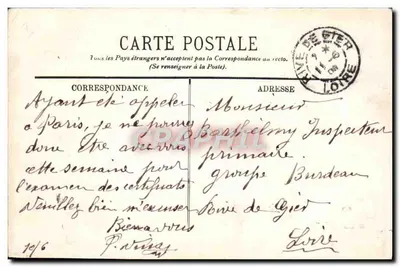 CARTE POSTALE
Tous les Pays étrangers n'acceptent pas la Correspondance au recto.
(Se renseigner à la Poste).
CORRESPONDANCE
Ayant été appeler
à Paris, je ne pourrai
donc être avec vous
cette semaine pour
l'examen des certificats
Veuillez bien m'excuser
Bien à vous
10/6
ADRESSE
Monsieur
Barthélmy Inspecteur
primaire
groupe Burdeau
Rive de Gier
Loire
RIVE DE GIER
LOIRE